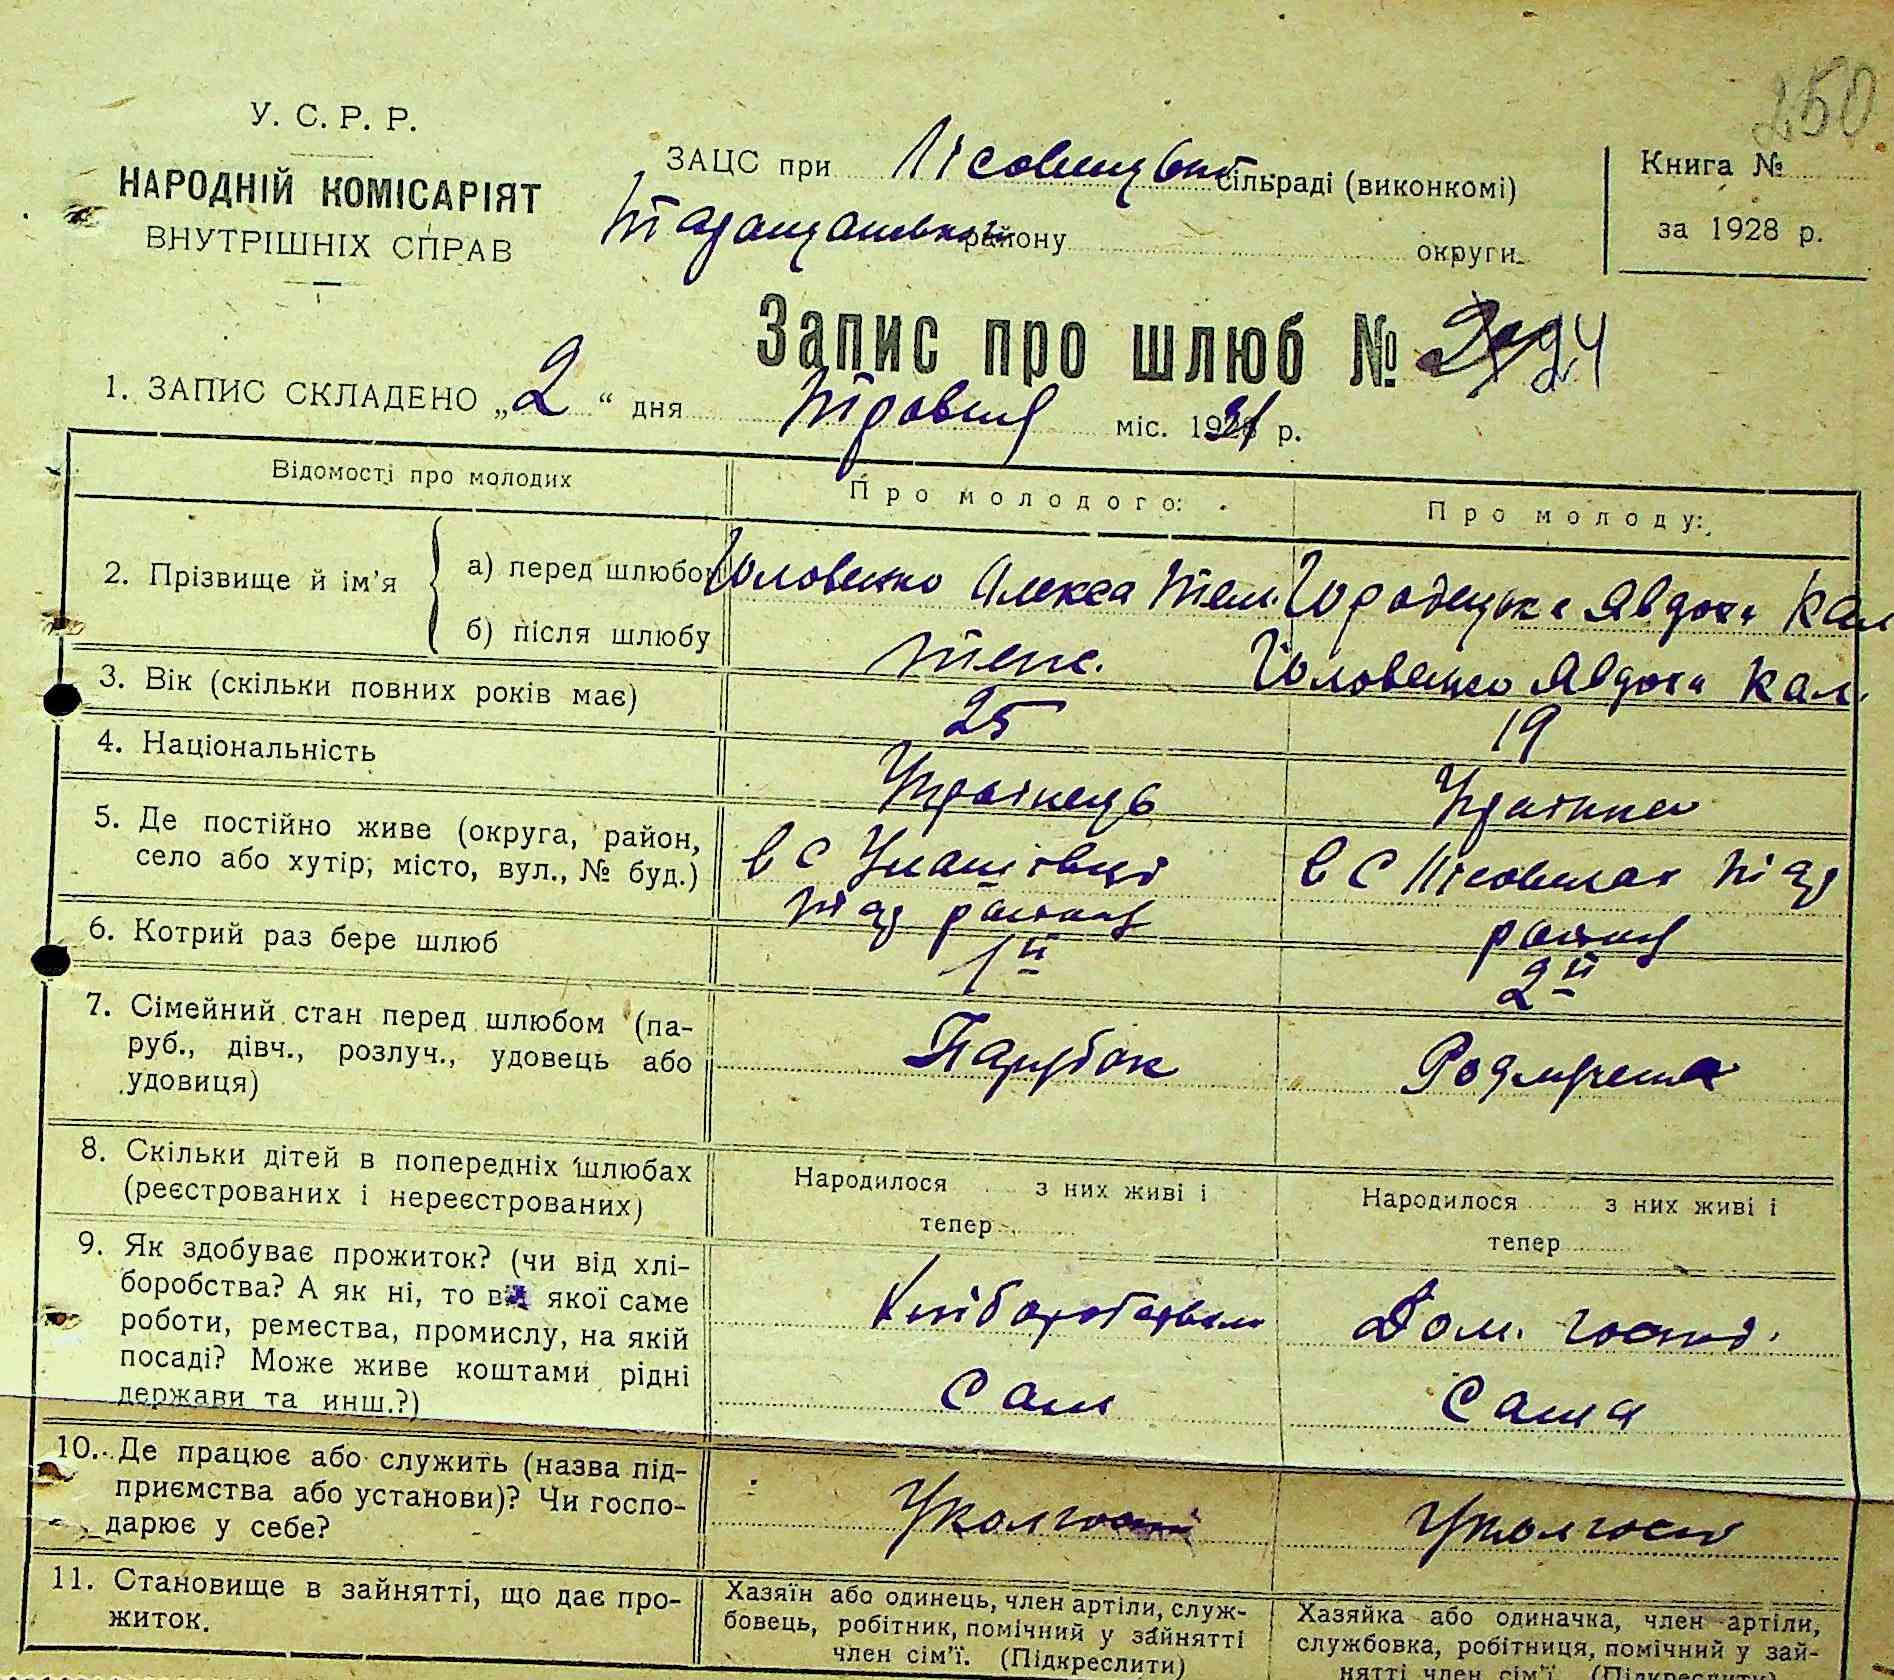 250
У. С. Р. Р.
НАРОДНІЙ КОМІСАРІЯТ
ВНУТРІШНІХ СПРАВ
ЗАЦС при Лісовицькі сільраді (виконкомі)
району округи
Книга №
за 1928 р.
Запис про шлюб № 24
1. ЗАПИС СКЛАДЕНО „2“ дня Травня міс. 1931 р.
Відомості про молодих
Про молодого:
Про молоду:
2. Прізвище й ім’я
а) перед шлюбом
Головенко Алекса Тем.
Городецька Явдоха Кал
б) після шлюбу
Головенко Явдоха Кал.
3. Вік (скільки повних років має)
25
19
4. Національність
Українець
Українка
5. Де постійно живе (округа, район,
село або хутір, місто, вул., № буд.)
в с
Тар району
в с Лісовичах Тар
району
6. Котрий раз бере шлюб
1й
2й
7. Сімейний стан перед шлюбом (па-
руб., дівч., розлуч., удовець або
удовиця)
Парубок
8. Скільки дітей в попередніх шлюбах
(реєстрованих і нереєстрованих)
Народилося з них живі і
тепер
Народилося з них живі і
тепер
9. Як здобуває прожиток? (чи від хлі-
боробства? А як ні, то від якої саме
роботи, ремества, промислу, на якій
посаді? Може живе коштами рідні
держави та инш.?)
Хліборобством
Сам
Дом. госпо.
Сама
10. Де працює або служить (назва під-
приємства або установи)? Чи госпо-
дарює у себе?
У колгоспі
У колгоспі
11. Становище в зайнятті, що дає про-
житок.
Хазяїн або одинець, член артіли, служ-
бовець, робітник, помічний у зайнятті
член сім’ї. (Підкреслити)
Хазяйка або одиначка, член артіли,
службовка, робітниця, помічний у зай-
нятті член сім’ї (Підкреслити)